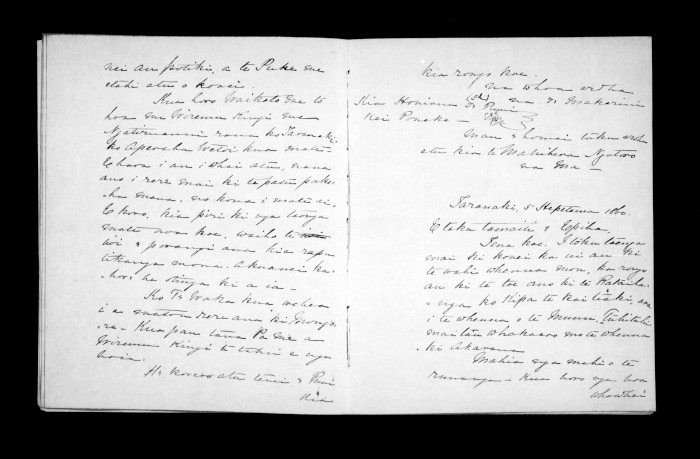 nei au potiki, a te Puke me
etahi atu o konei.
Kua horo Waikato me to
hoa me Wiremu Kingi me
Ngatiruanui raua ko Taranaki
ko Aperahama Wetoi kua mate
Ehara i au i whai atu, nana
ano i rere mai ki te patu pako-
ha mana, no kona i mate ai,
E koro, kia piri ki nga taonga
mate ora koe, waiho te
porangi ana kia rapu
tikanga mona. Akuanei ka-
hore he tinga ki a ia -
Ko Te Waka kua wehea
i a matou rere ana ki Mongo-
ra - Kua pau tana Pa me a
Wiremu Kingi te tahu e nga
hoia.
He korero atu tenei
Kia
kia rongo koe.
na to hoa aroha
na Te Makarini
Kia Honiana Te Puni
Kei Poneke -
Mau e homai tuku aroha
atu kia te Mabihera Ngatoro
na Ma -
Taranaki, 5 Hepetema 1860.
E taku tamaiti e Epiha,
Tena koe. I toku taenga
mai ki konei ka ui au ki
te wahi whenua mou, ka rongo
au kei te toe ano ki Ratanui
e nga ko Ripa te kai tiaki, ana
i te whenua o te Muuru, tukituki
mai tau whakaaro mo te whenua
ki Akarana
Mahia nga mahi o te
runanga - Kua horo nga hoa
whawhai